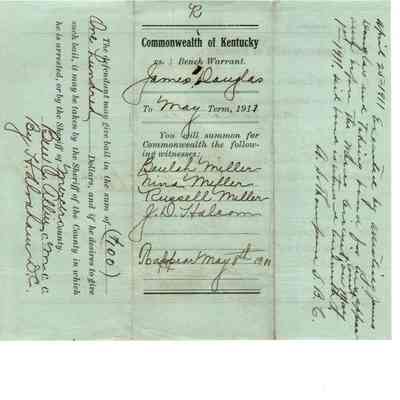 R
Commonwealth of Kentucky
vs. } Bench Warrant.
James Douglas
To May Term, 1911
You will summon for
Commonwealth the follow-
ing witnesses:
Beulah Miller
Nina Miller
Russell Miller
J. D. Halcom
To appear May 8th 1911
The defendant may give bail in the sum of ($100)
One Hundred Dollars, and if he desires to give
such bail, it may be taken by the Sheriff of the County in which
he is arrested, or by the Sheriff of County.
C. C.
By D.C.
April 25th 1911 Executed by arresting James
Douglas and taking bond for
1911. Said bond is
S. B. C.